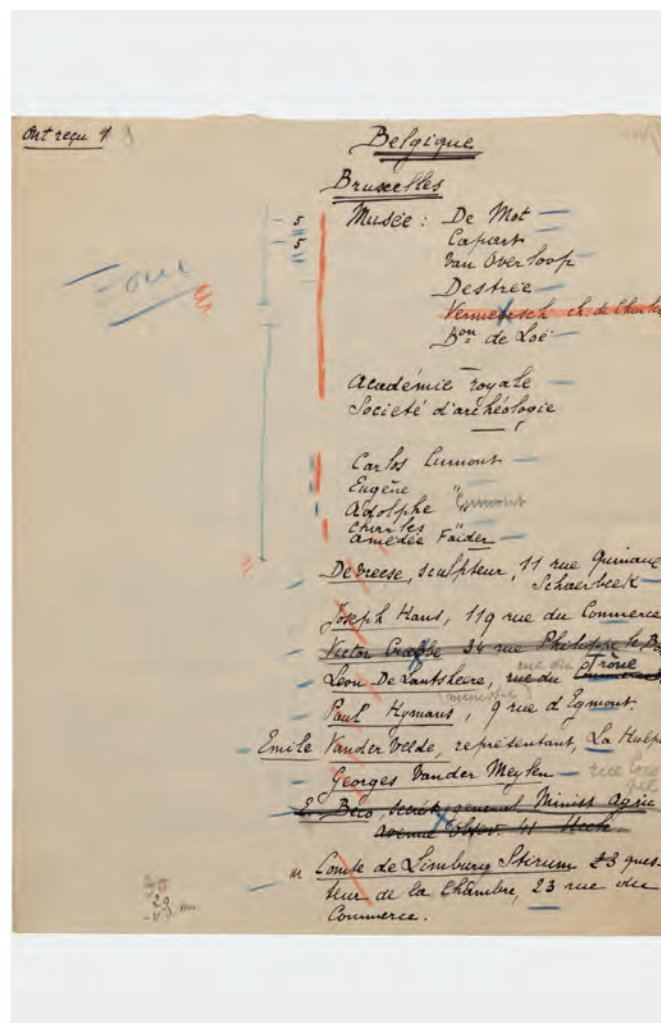 Ont reçu
Belgique
Bruxelles
5
5
Musée : De Mot
Capart
Van Overloop
Destrée
Vermeersch ch. de Charle
Bon de Loë
Académie royale
Societé d'archéologie
oui
Carlos Cumont
Eugène "
Adolphe " Cumont
Charles "
Amédée Faider
Devreese, sculpteur, 11 rue Quinaux
Schaerbeek
Joseph Hans, 119 rue du Commerce
Victor Crabbe 34 rue Philippe le Bo
rue du Trône
Léon De Lantsheere, rue du Commerce
(ministre)
Paul Hymans, 9 rue d'Egmont.
Emile Vander Velde, représentant, La Hulpe
Georges Vander Meylen
E. Béco, secrét. general Minist Agric
avenue Observ. 41 Uccle.
Comte de Limburg Stirum 23 ques-
teur de la Chambre, 23 rue du
Commerce.
29